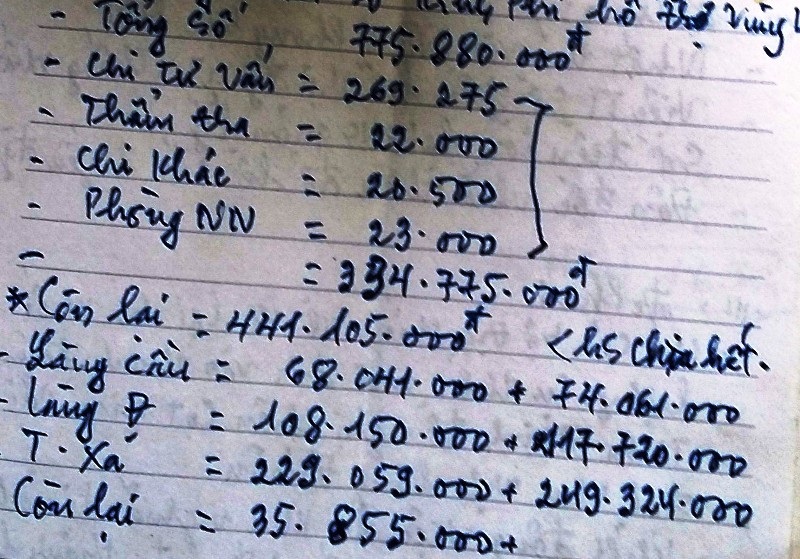 hỗ thợ vùng
- Tổng số 775.880.000đ
- Chi tư vấn = 269.275
- Thẩm tra = 22.000
- Chi khác = 20.500
- Phòng NN = 23.000
- = 334.775.000đ
* Còn lại = 441.105.000đ <hs chưa hết.
- Làng Cầu = 68.041.000 + 74.061.000
- Làng Đ = 108.150.000 + 117.720.000
T. Xá = 229.059.000 + 249.324.000
Còn lại = 35.855.000+